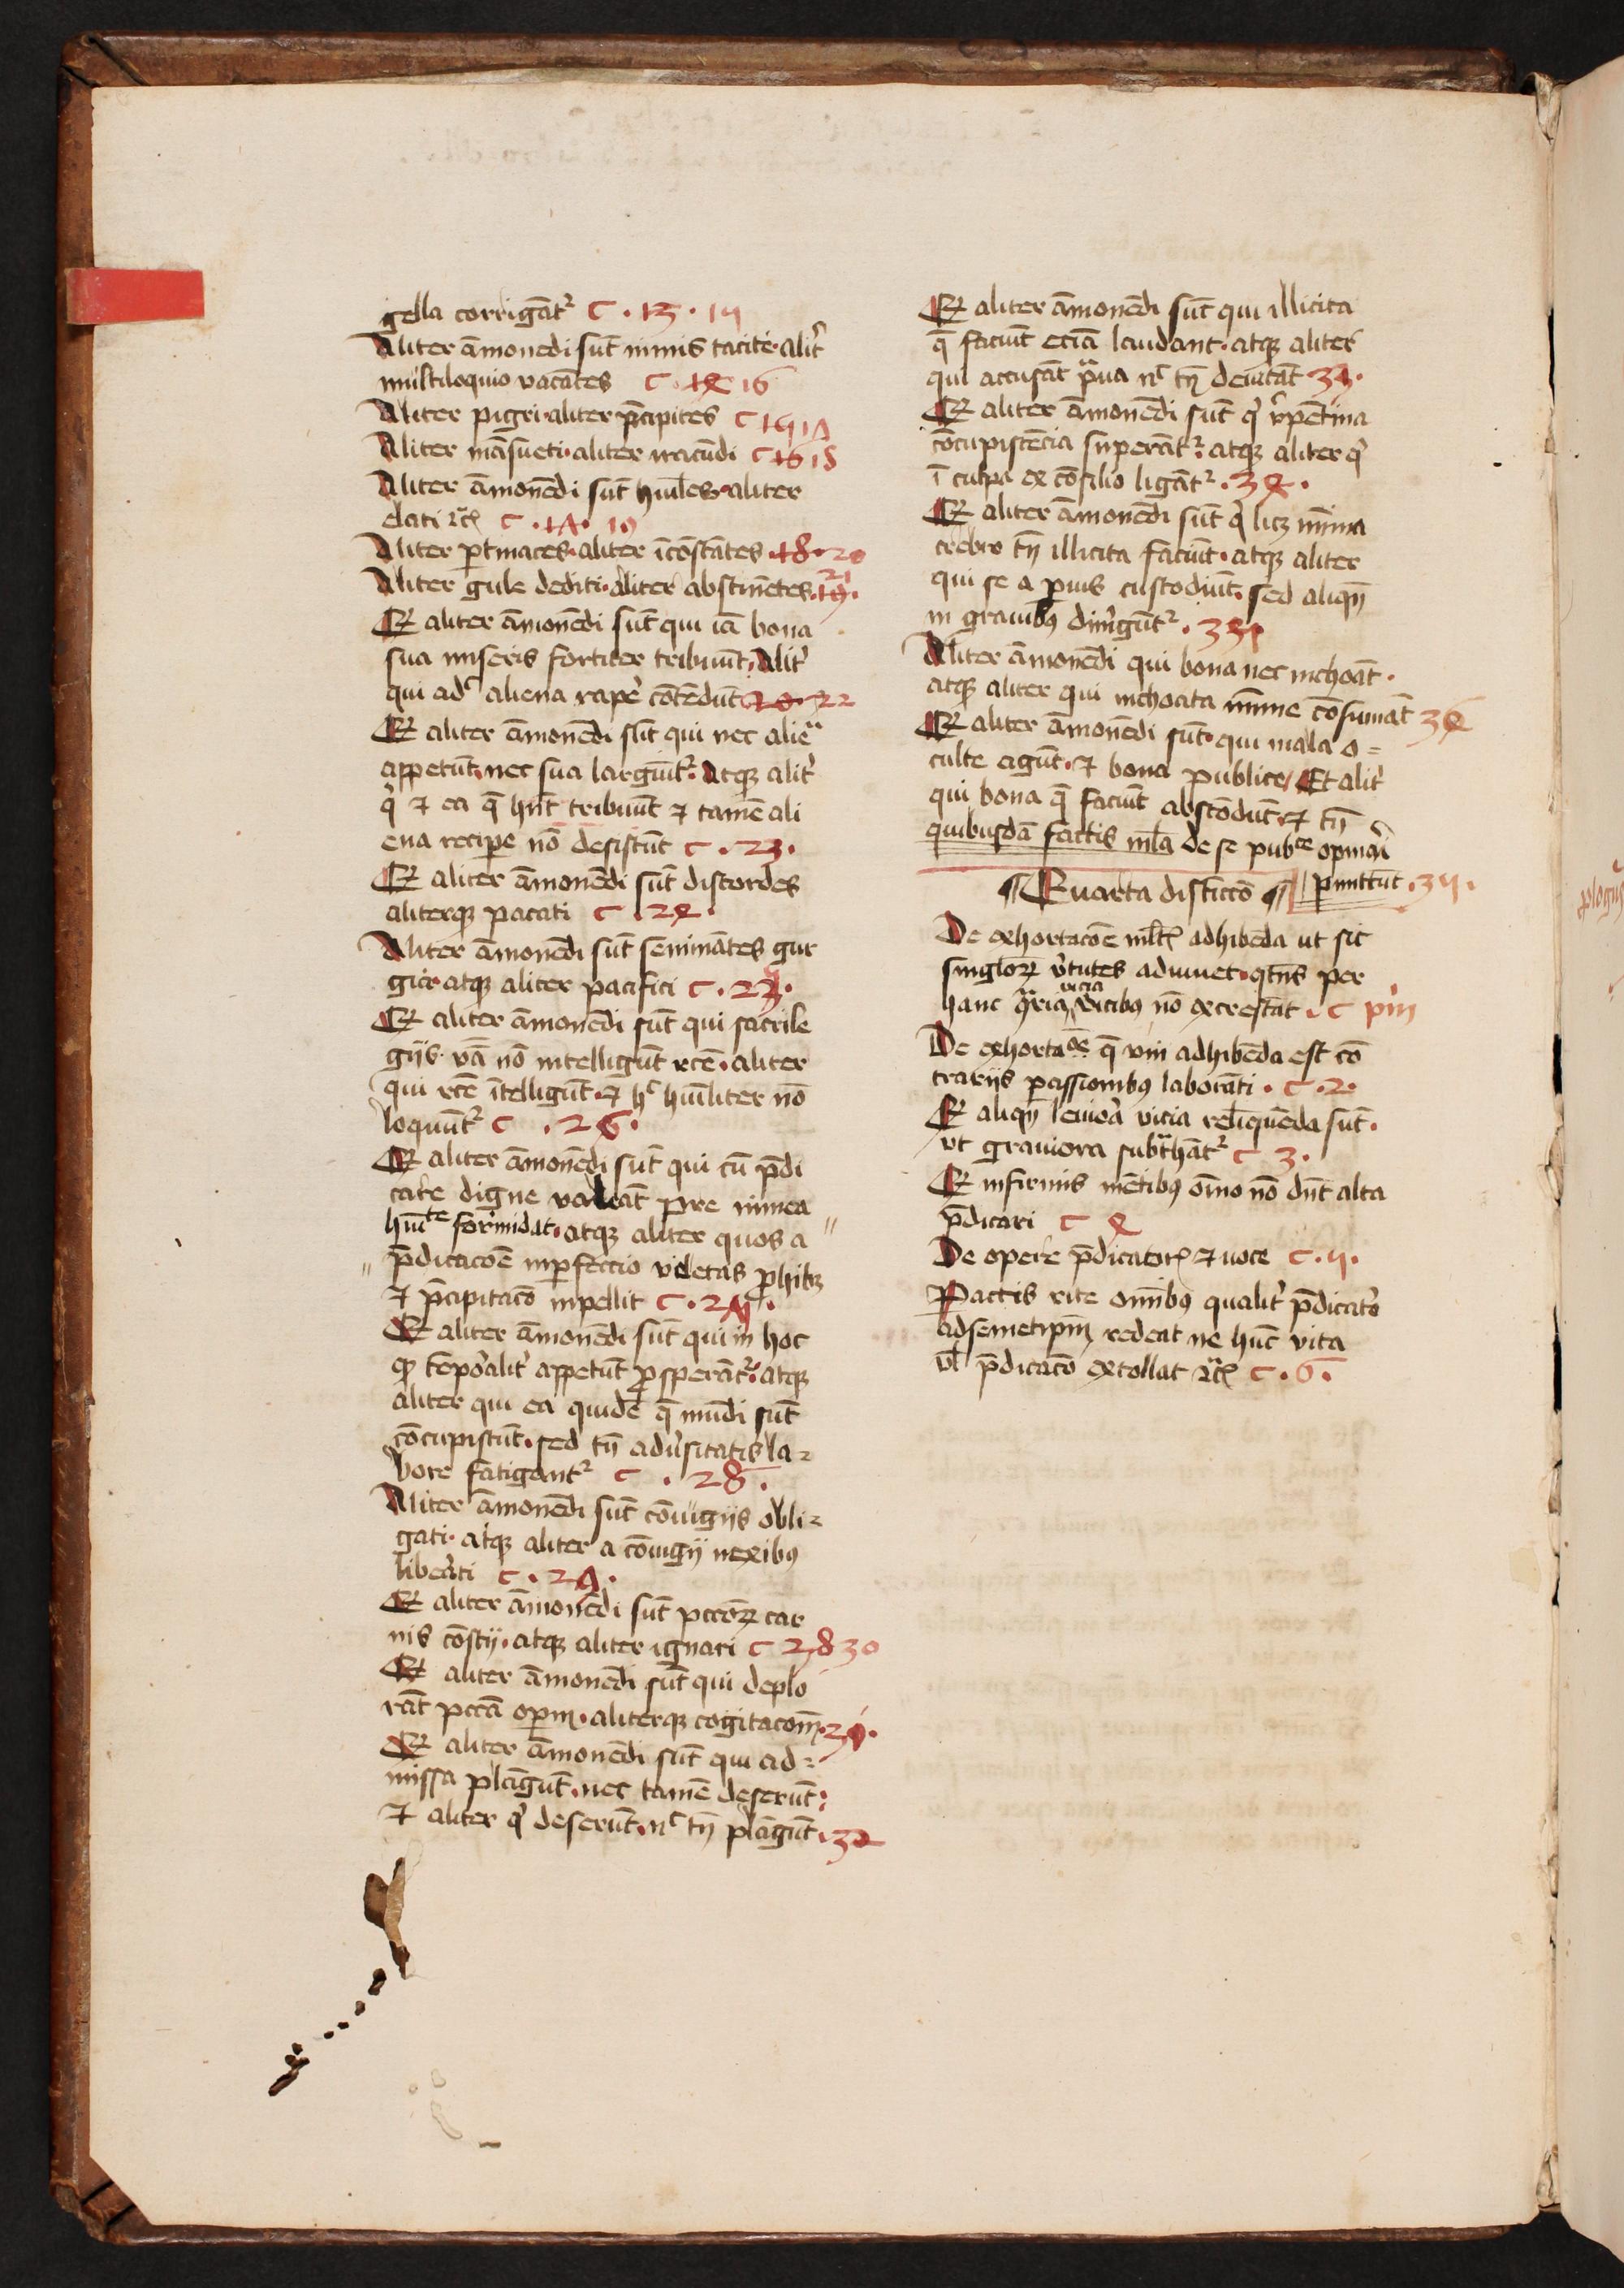 gella corrigāt² C · 13 · 14
Aliter āmonedi sūt nimis tacite · alit̄
multiloquio vacātes C · 16
Aliter pigri · aliter p̄cipites C
Aliter māsueti · aliter iracūdi C 18
Aliter āmonēdi sūt huīles · aliter
elati C · 19
Aliter ptinaces · aliter īcōstātes · 18 · 20
Aliter gule dediti · aliter abstinētes · 19 · 21
Et aliter āmonēdi sūt qui iā bona
sua miseris fortiter tribuūt · Alit̄
qui adᶜ aliena rape cōtēdūt 20 · 22
Et aliter āmonēdi sūt qui nec aliēᵃ
appetūt · nec sua largiūt² · Atqꝫ alit̄
q̇ ⁊ ea q̄ hn̄t tribuūt ⁊ tamē ali
ena recipe nō desistūt C · 23 ·
Et aliter āmonēdi sūt discordes
aliterqꝫ pacati C · 24 ·
Aliter āmonēdi sūt seminātes gur
gia · atqꝫ aliter pacifici C · 25 ·
Et aliter āmonēdi sūt qui sacrile
gijs vā nō intelligūt rc̄e · aliter
qui rc̄e ītelligūt · ⁊ hᶜ huīliter nō
loquūt² C · 26 ·
Et aliter āmonēdi sūt qui cū p̄di
care digne valeāt pre nimea
hūiᵗᵉ formidāt · atqꝫ aliter quos a
p̄dicacōe īnperfectio vel etas phibꝫ
⁊ p̄cipitacō inpellit C · 27 ·
Et aliter āmonēdi sūt qui in hoc
qꝫ tēpōalit̄ appetūt psperāt² · atqꝫ
aliter qui ea quidē q̄ mūdi sūt
cōcupiscūt · sed tn̄ adūsitatis la=
bore fatigant² C · 28 ·
Aliter āmonēdi sūt cōiugijs obli=
gati · atqꝫ aliter a cōiugij nexibꝰ
libeāti C · 29 ·
Et aliter āmonēdi sūt pcc̄oꝝ car
nis cōscij · atqꝫ aliter ignari C 28 30
Et aliter āmonēdi sūt qui deplo
rāt pcc̄ā opm̄ · aliterqꝫ cogitacom̄ ·
Et aliter āmonēdi sūt qui ad=
missa plāgūt · nec tamē deserūt :
⁊ aliter q̇ deserūt · nᶜ tn̄ plāgūt · 32
Et aliter āmonēdi sūt qui illicita
q̄ faciūt eciā laudant · atqꝫ aliter
qui accusāt pᵃua nᶜ tn̄ deuitāt 33 ·
Et aliter āmonēdi sūt q̇ repētina
cōcupiscēcia superāt² : atqꝫ aliter q̇
ī culpa ex cōsilio ligāt² · 34 ·
Et aliter āmonēdi sūt q̇ licꝫ mīma
crebro tn̄ illicita faciūt · atqꝫ aliter
qui se a paruis custodiūt · sed aliqn̄
in grauibꝰ dim̄gūt² · 35
Aliter āmonēdi qui bona nec inchoāt ·
atqꝫ aliter qui inchoata mīme cōsumāt 36
Et aliter āmonēdi sūt · qui mala o=
culte agūt · ⁊ bona publice / Et alit̄
qui bona q̄ faciūt abscōdūt · ⁊ tn̄
quibusdā factis mla de se pubᶜᵉ opinari
¶ Quarta distīccō ¶ p̄mittūt · 37 ·
De exhortacōe ml̄tꝝ adhibēda ut sic
singloꝝ v̄tutes adiuuet · qtn̄s per
hanc 9ᵃria vicia v̄tutibꝰ nō excrescāt · C pm̄
De exhortaᵒⁿᵉ q̄ vni adhibēda est cō
trarijs passionibꝰ laborāti · C · 2 ·
Et aliqn̄ leuioᵃ vicia reliquēda sūt ·
ut grauiora subtᵃhāt² C 3 ·
Et infirmis mētibꝰ oīno nō dn̄t alta
p̄dicari C 4
De opere p̄dicatorꝭ ⁊ uoce C · 5 ·
Pactis rite omībꝰ qualit̄ p̄dicatō
adsemetipm̄ redeat ne hūc vita
vl̄ p̄dicacō extollat C · 6 ·